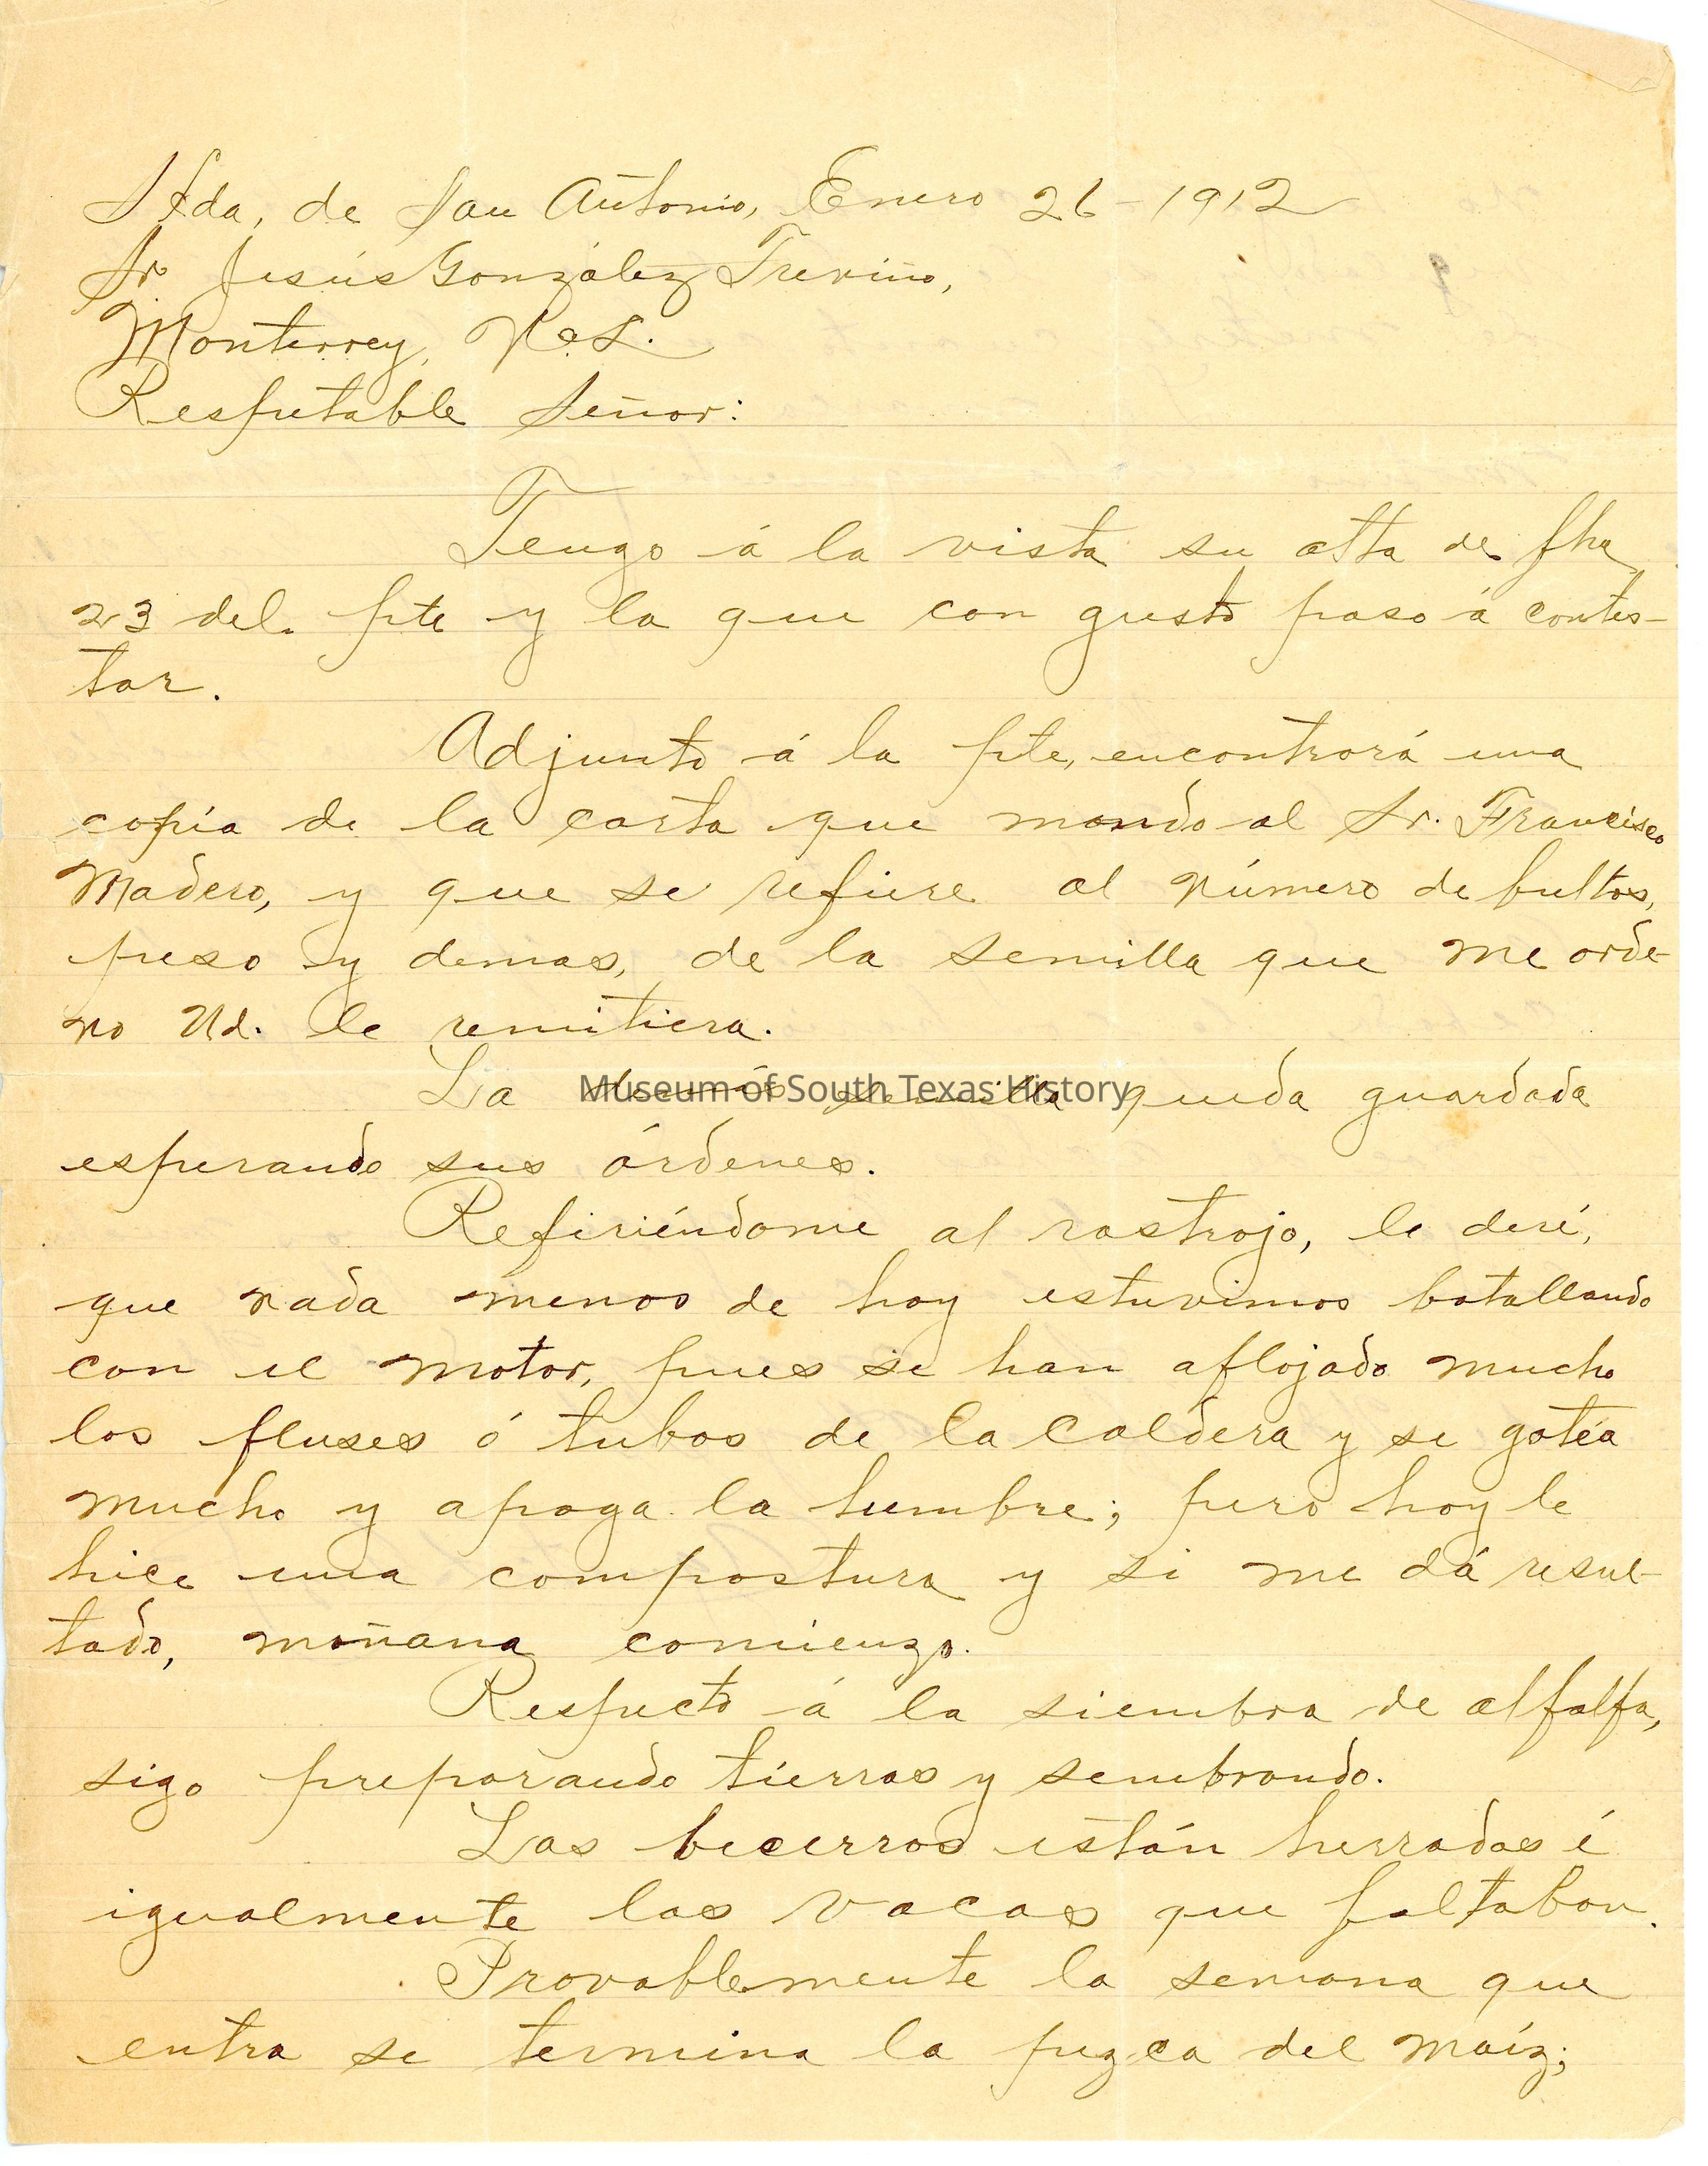 Hda, de San Antonio, Enero 26-1912
Sr Jesús González Treviño,
Monterrey, N.L.
Respetable Señor:
Tengo á la vista su atta de fha
23 del pte y la que con gusto paso á contes-
tar.
Adjunto á la pte, encontrará una
copia de la carta que mando al Sr. Francisco
Madero, y que se refiere al número de bultos,
peso y demas, de la semilla que me orde-
no Ud. le remitiera.
La demás semilla queda guardada
Museum of South Texas History
esperando sus órdenes.
Refiriéndome al rastrojo, le deré,
que nada menos de hoy estuvimos batallando
con el motor, pues se han aflojado mucho
los fluses ó tubos de la caldera y se gotéa
mucho y apaga la lumbre; pero hoy le
hice una compostura y si me dá resul-
tado, mañana comienzo.
Respecto á la siembra de alfalfa,
sigo preparando tierras y sembrando.
Las becerras están herradas é
igualmente las vacas que faltaban.
Provablemente la semana que
entra se termina la pizca del maíz;